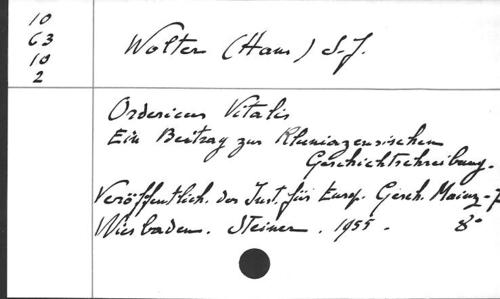 10
63
10
2
Wolter (Hans) S.J.
Ordericus Vitalis
Ein Beitrag zur Kluniazensischen
Geschichtschreibung.
Veröffentlich. des Inst. für Europ. Gesch. Mainz - 7
Wiesbaden. Steiner. 1955. 8°